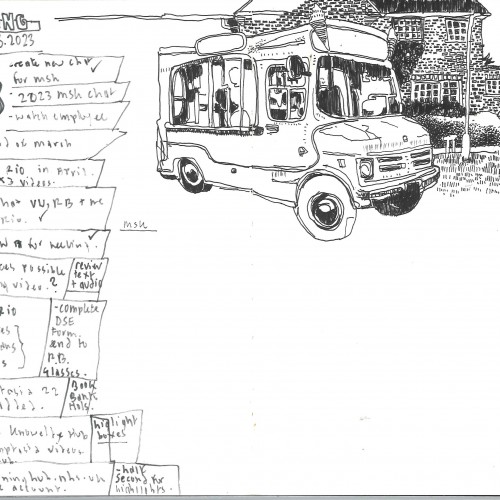 NG
.2023
create new chat
for msk
- 2023 msk chat
- watch employee
d of march
RIO in April.
x3 videos.
hor VV, RB + me
Rio.
for meeting.
ces possible
ng video.?
review
text
+ audio
RIO
- complete
DSE
Form.
send to
R.B.
Glasses.
22
Book
Bank
Hols.
Knowelge Hub
videos
hub.
highlight
boxes
ninghub.nhs.uk
account.
- half
second for
highlights.
msk